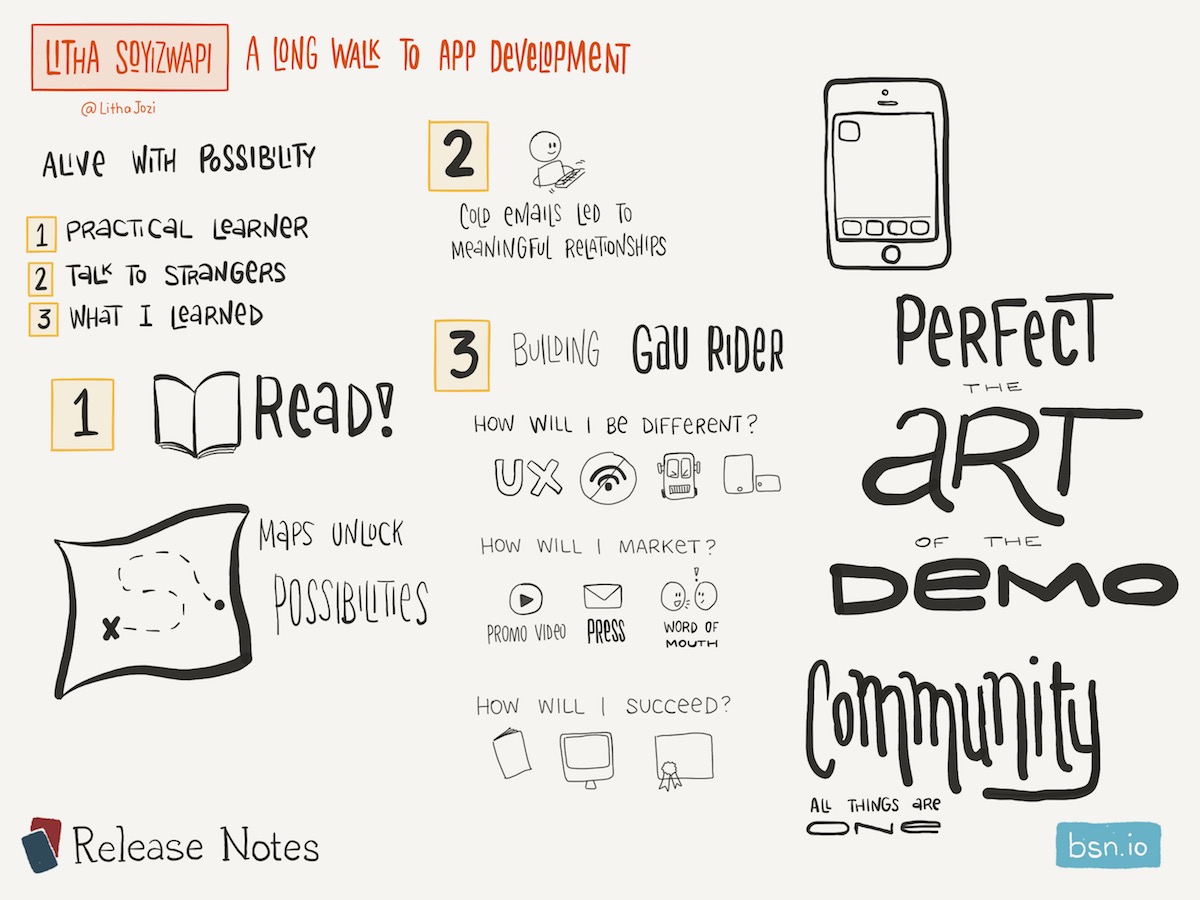 LITHA SOYIZWAPI A LONG WALK TO APP DEVELOPMENT
@LithaJozi
ALIVE WITH POSSIBILITY
1 PRACTICAL LEARNER
2 TALK TO STRANGERS
3 WHAT I LEARNED
1 READ!
MAPS UNLOCK
POSSIBILITIES
2
COLD EMAILS LED TO
MEANINGFUL RELATIONSHIPS
3 BUILDING GAU RIDER
HOW WILL I BE DIFFERENT?
UX
HOW WILL I MARKET?
PROMO VIDEO PRESS WORD OF
MOUTH
HOW WILL I SUCCEED?
PERFECT
THE
ART
OF THE
DEMO
Community
ALL THINGS ARE
ONE
Release Notes
bsn.io